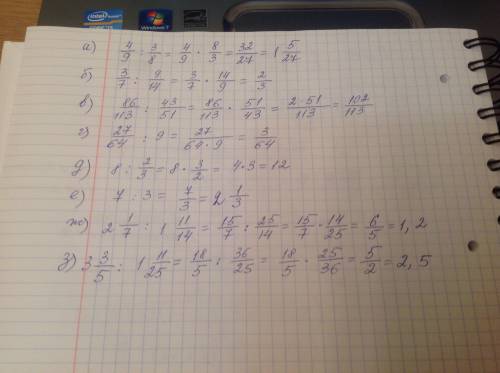 intel CORE i3 Windows® 7
а) 4/9 : 3/8 = 4/9 · 8/3 = 32/27 = 1 5/27
б) 3/7 : 9/14 = 3/7 · 14/9 = 2/3
в) 86/113 : 43/51 = 86/113 · 51/43 = 2·51/113 = 102/113
г) 27/64 : 9 = 27/64·9 = 3/64
д) 8 : 2/3 = 8 · 3/2 = 4·3 = 12
е) 7 : 3 = 7/3 = 2 1/3
ж) 2 1/7 : 1 11/14 = 15/7 : 25/14 = 15/7 · 14/25 = 6/5 = 1,2
з) 3 3/5 : 1 11/25 = 18/5 : 36/25 = 18/5 · 25/36 = 5/2 = 2,5